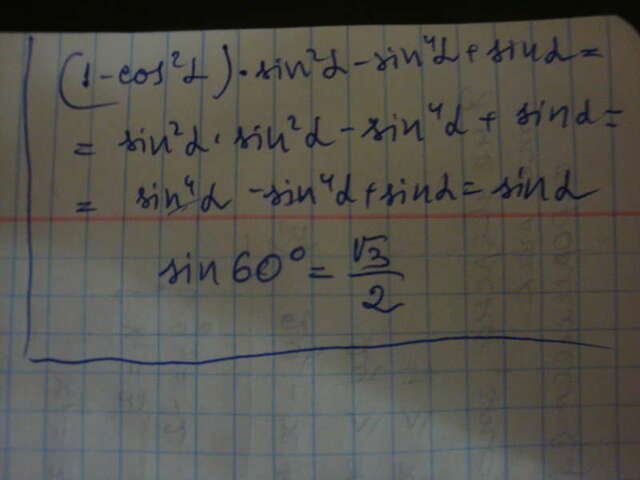 (1-cos²α)·sin²α-sin⁴α+sinα=
= sin²α·sin²α-sin⁴α+sinα=
= sin⁴α-sin⁴α+sinα=sinα
sin60°=√3/2